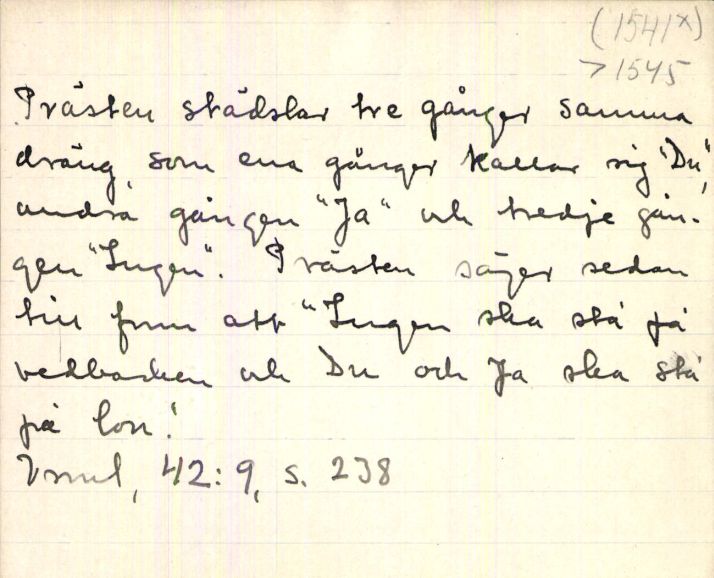 (1541x)
>1545
Prästen städslar tre gånger samma
dräng, som ena gånger kallar sig "Du",
andra gången "Ja" och tredje gån-
gen "Ingen". Prästen säger sedan
till frun att "Ingen ska stå på
vedbacken och Du och Ja ska stå
på lon."
42:9, s. 238